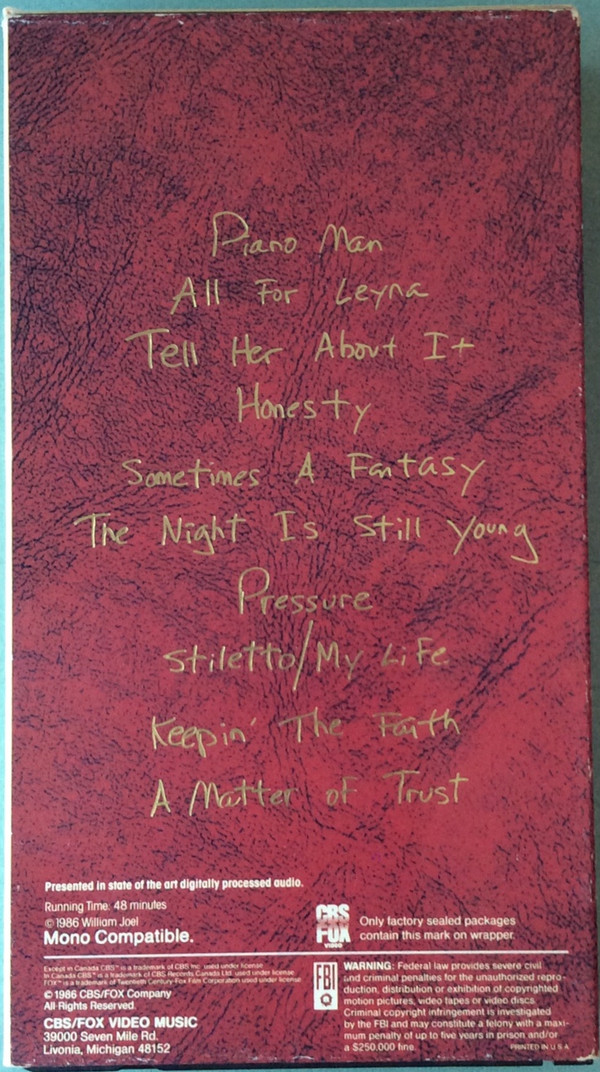 Piano Man
All For Leyna
Tell Her About It
Honesty
Sometimes A Fantasy
The Night Is Still Young
Pressure
Stiletto/My Life
Keepin' The Faith
A Matter of Trust
Presented in state of the art digitally processed audio.
Running Time: 48 minutes
©1986 William Joel
Mono Compatible.
CBS
FOX
VIDEO
Only factory sealed packages
contain this mark on wrapper.
Except in Canada CBS™ is a trademark of CBS Inc. used under license
In Canada CBS™ is a trademark of CBS Records Canada Ltd. used under license
FOX™ is a trademark of Twentieth Century-Fox Film Corporation used under license
©1986 CBS/FOX Company
All Rights Reserved.
CBS/FOX VIDEO MUSIC
39000 Seven Mile Rd.
Livonia, Michigan 48152
FBI
WARNING: Federal law provides severe civil
and criminal penalties for the unauthorized repro-
duction, distribution or exhibition of copyrighted
motion pictures, video tapes or video discs.
Criminal copyright infringement is investigated
by the FBI and may constitute a felony with a maxi-
mum penalty of up to five years in prison and/or
a $250,000 fine.
PRINTED IN U.S.A.